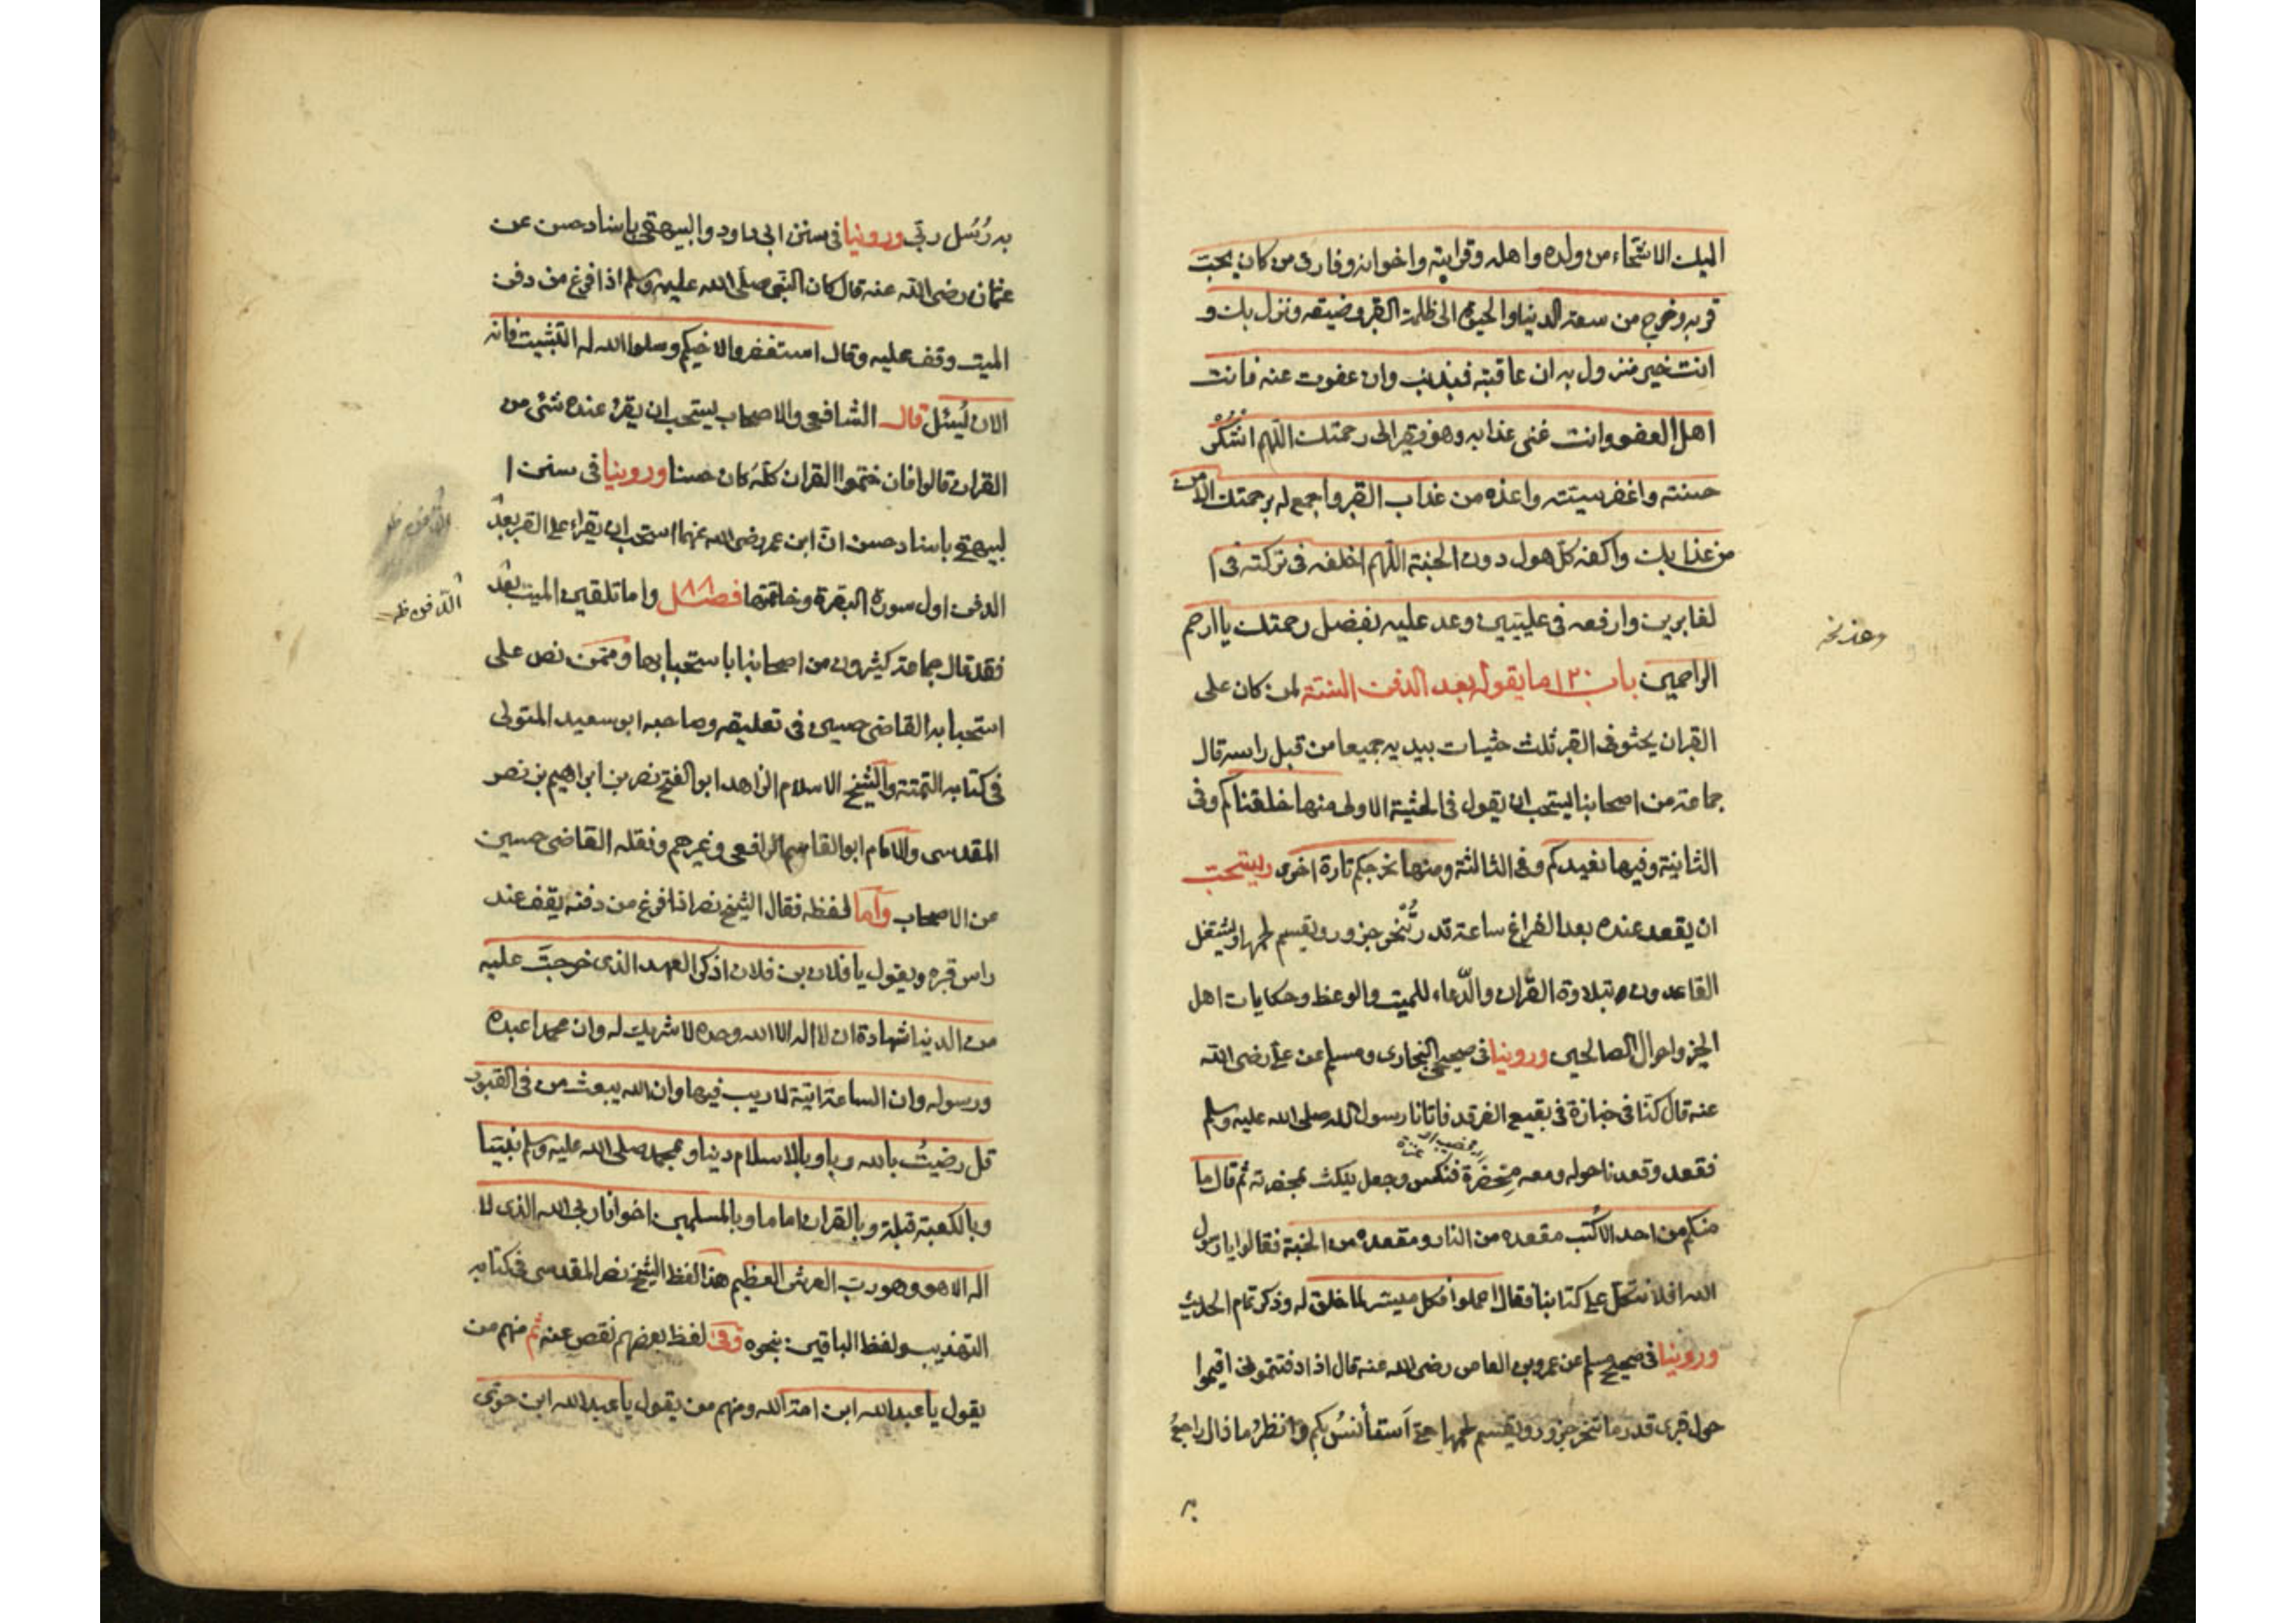 اليك الاشحاء من ولده واهله وقرابته واخوانه وفارق من كان يحب
قربه وخرج من سعة الدنيا والحيوة الى ظلمة القبر وضيقه ونزل بك و
انت خير منزول به ان عاقبته فبذنب وان عفوت عنه فانت
اهل العفو وانت غنى عذابه وهو فقير الى رحمتك اللهم اشكر
حسنته واغفر سيئته واعذه من عذاب القبر واجمع له برحمتك الامن
من عذابك واكفه كل هول دون الجنة اللهم اخلفه فى تركته فى ا
لغابرين وارفعه فى عليين وعد عليه بفضل رحمتك يا ارحم
وعذ نخه
الراحمين باب ١٣٠ ما يقوله بعد الدفن السنة لمن كان على
القران يحثو فى القبر ثلث حثيات بيديه جميعا من قبل راسه قال
جماعة من اصحابنا يستحب ان يقول فى الحثية الاولى منها خلقناكم وفى
الثانية وفيها نعيدكم وفى الثالثة ومنها نخرجكم تارة اخرى ويستحب
ان يقعد عنده بعد الفراغ ساعة قدر تُنحر جزور ويقسم لحمها ويشتغل
القاعدون بتلاوة القرآن والدّعاء للميت والوعظ وحكايات اهل
الخير واحوال الصالحين وروينا فى صحيحى البخارى ومسلم عن على رضى الله
عنه قال كنّا فى جنازة فى بقيع الغرقد فاتانا رسول الله صلى الله عليه وسلم
فقعد وقعدنا حوله ومعه مخصرة فنكس وجعل ينكث بمخصرته ثم قال ما
منكم من احد الا كُتب مقعده من النار ومقعده من الجنة فقالوا يا رسول
الله افلا نتكل على كتابنا فقال اعملوا فكل ميسّر لما خلق له وذكر تمام الحديث
وروينا فى صحيح مسلم عن عمرو بن العاص رضى الله عنه قال اذا دفنتمونى اقيموا
حول قبرى قدر ما تنحر جزور ويقسم لحمها حتى اَستأنسُ بكم وانظرُ ماذا اراجعُ
به
به رُسُل ربّى وروينا فى سنن ابى داود والبيهقى باسناد حسن عن
عثمان رضى الله عنه قال كان النبى صلى الله عليه وسلم اذا فرغ من دفن
الميت وقف عليه وقال استغفروا لاخيكم وسلوا الله له التثبيت فانه
الان يُسئل قال الشافعى والاصحاب يستحب ان يقرء عنده شئ من
القران قالوا فان ختموا القران كلّه كان حسنا وروينا فى سنن ا
لبيهقى باسناد حسن انّ ابن عمر رضى الله عنهما استحب ان يقراء على القبر بعد
الدفن اول سورة البقرة وخاتمتها فصل ١٨٨ واما تلقين الميت بعد
الدّفن ظ
فقد قال جماعة كثيرون من اصحابنا باستحبابها وممّن نص على
استحبابه القاضى حسين فى تعليقه وصاحبه ابو سعيد المتولى
فى كتابه التتمة والشيخ الاسلام الزاهد ابو الفتح نصر بن ابراهيم بن نصر
المقدسى والامام ابو القاسم الرافعى وغيرهم ونقله القاضى حسين
من الاصحاب واَما لفظه فقال الشيخ نصر اذا فرغ من دفنه يقف عند
راس قبره ويقول يا فلان بن فلان اذكر العهد الذى خرجتَ عليه
من الدنيا شهادة ان لا اله الا الله وحده لا شريك له وان محمدا عبده
ورسوله وان الساعة اتية لا ريب فيها وان الله يبعث من فى القبور
قل رضيتُ بالله ربا وبالاسلام دينا وبمحمد صلى الله عليه وسلم نبيّا
وبالكعبة قبلة وبالقران اماما وبالمسلمين اخوانا ربى الله الذى لا
اله الا هو وهو رب العرش العظيم هذا لفظ الشيخ نصر المقدسى فى كتابه
التهذيب ولفظ الباقين بنحوه وفى لفظ بعضهم نقص عنه ثم منهم من
يقول يا عبد الله ابن امة الله ومنهم من يقول يا عبد الله ابن حوّى